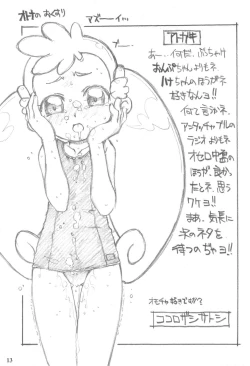 オトナの おくすり
マズーイ…
アトガキ
あー、何だ、ぶっちゃけ
おんぷちゃんよりもネ
ハナちゃんのほうがネ
好きなんヨ!!
何と言うかネ、
アンタッチャブルの
ラジオよりもネ
オセロ中島の
ほうが、良かっ
たとネ、思う
ワケヨ!!
まあ、気長に
次のネタを
待つのぢゃヨ!!
オモチャ好きですが?
ココロザシサトシ
13